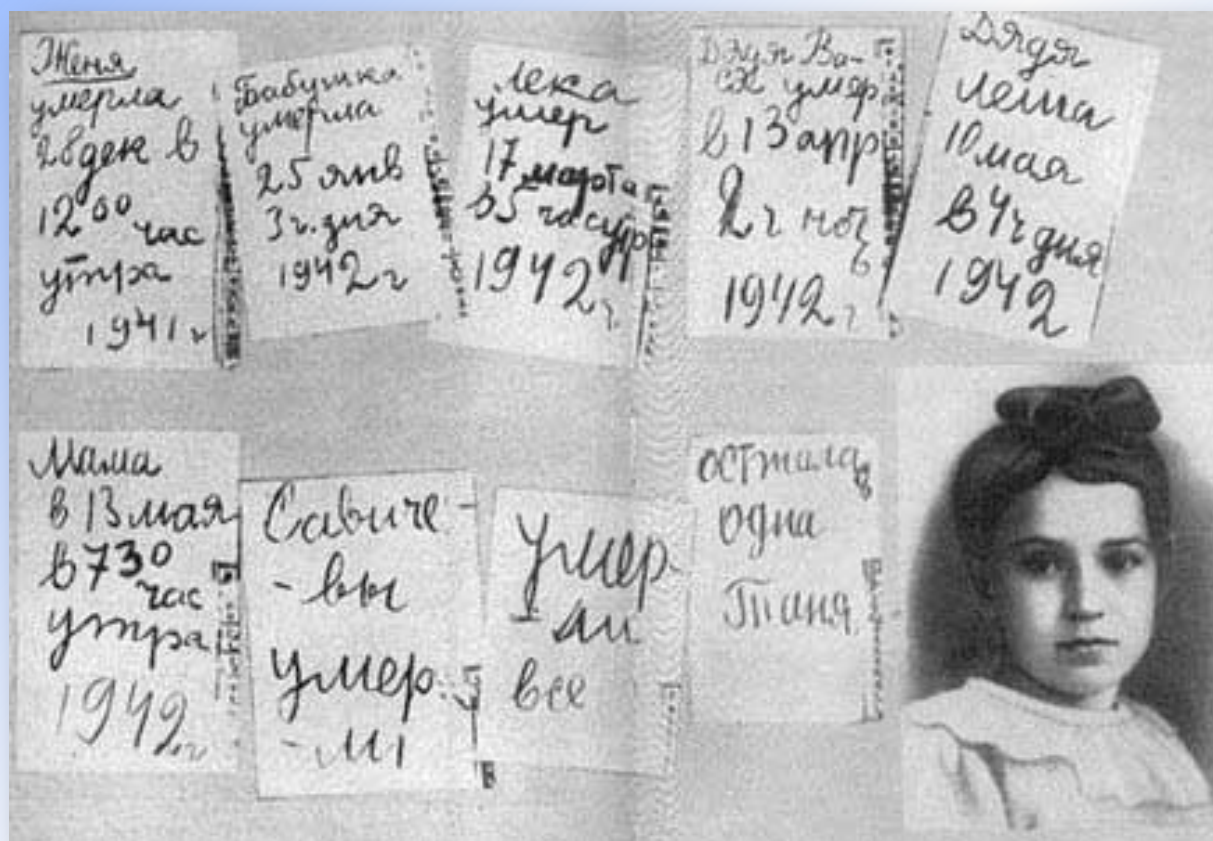 Женя
умерла
28 дек в
12 00 час
утра
1941 г
Бабушка
умерла
25 янв
3 ч. дня
1942 г
Лека
умер
17 марта
в 5 час утр
1942 г.
Дядя Ва-
ся умер
в 13 апр
2 ч ноч
ь
1942 г
Дядя
Леша
10 мая
в 4 ч дня
1942
Мама
в 13 мая
в 7 30
час
утра
1942 г
Савиче-
-вы
умер
-ли
умер-
-ли
все
осталась
одна
Таня